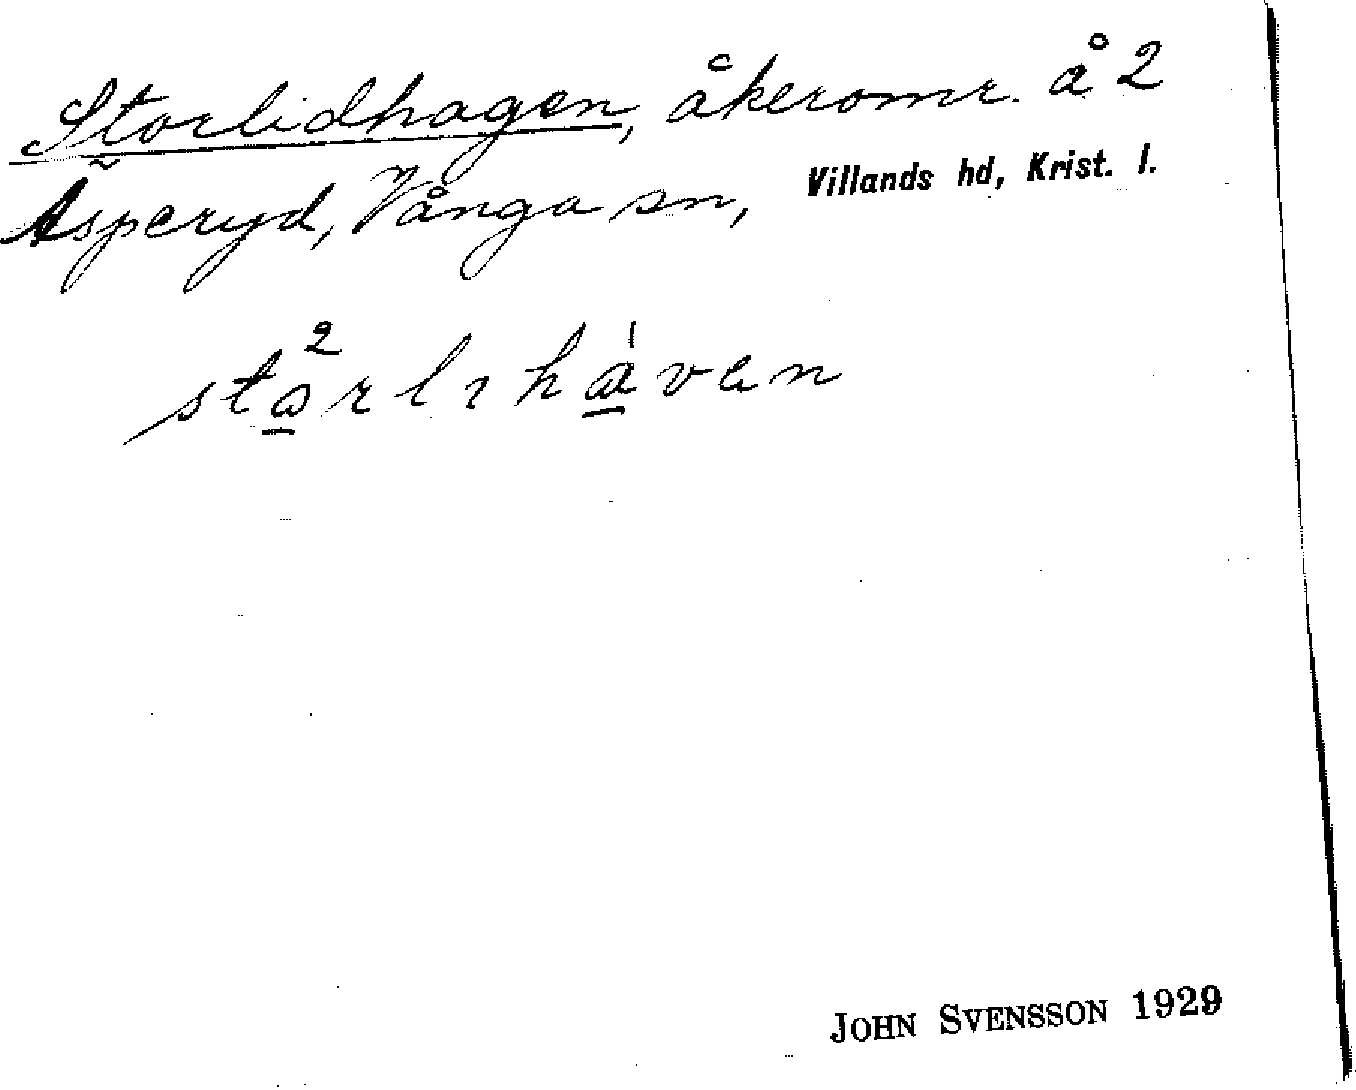 Storlidhagen, åkeromr. å 2
Asperyd, Vånga sn, Villands hd, Krist. l.
stårlıháven
JOHN SVENSSON 1929